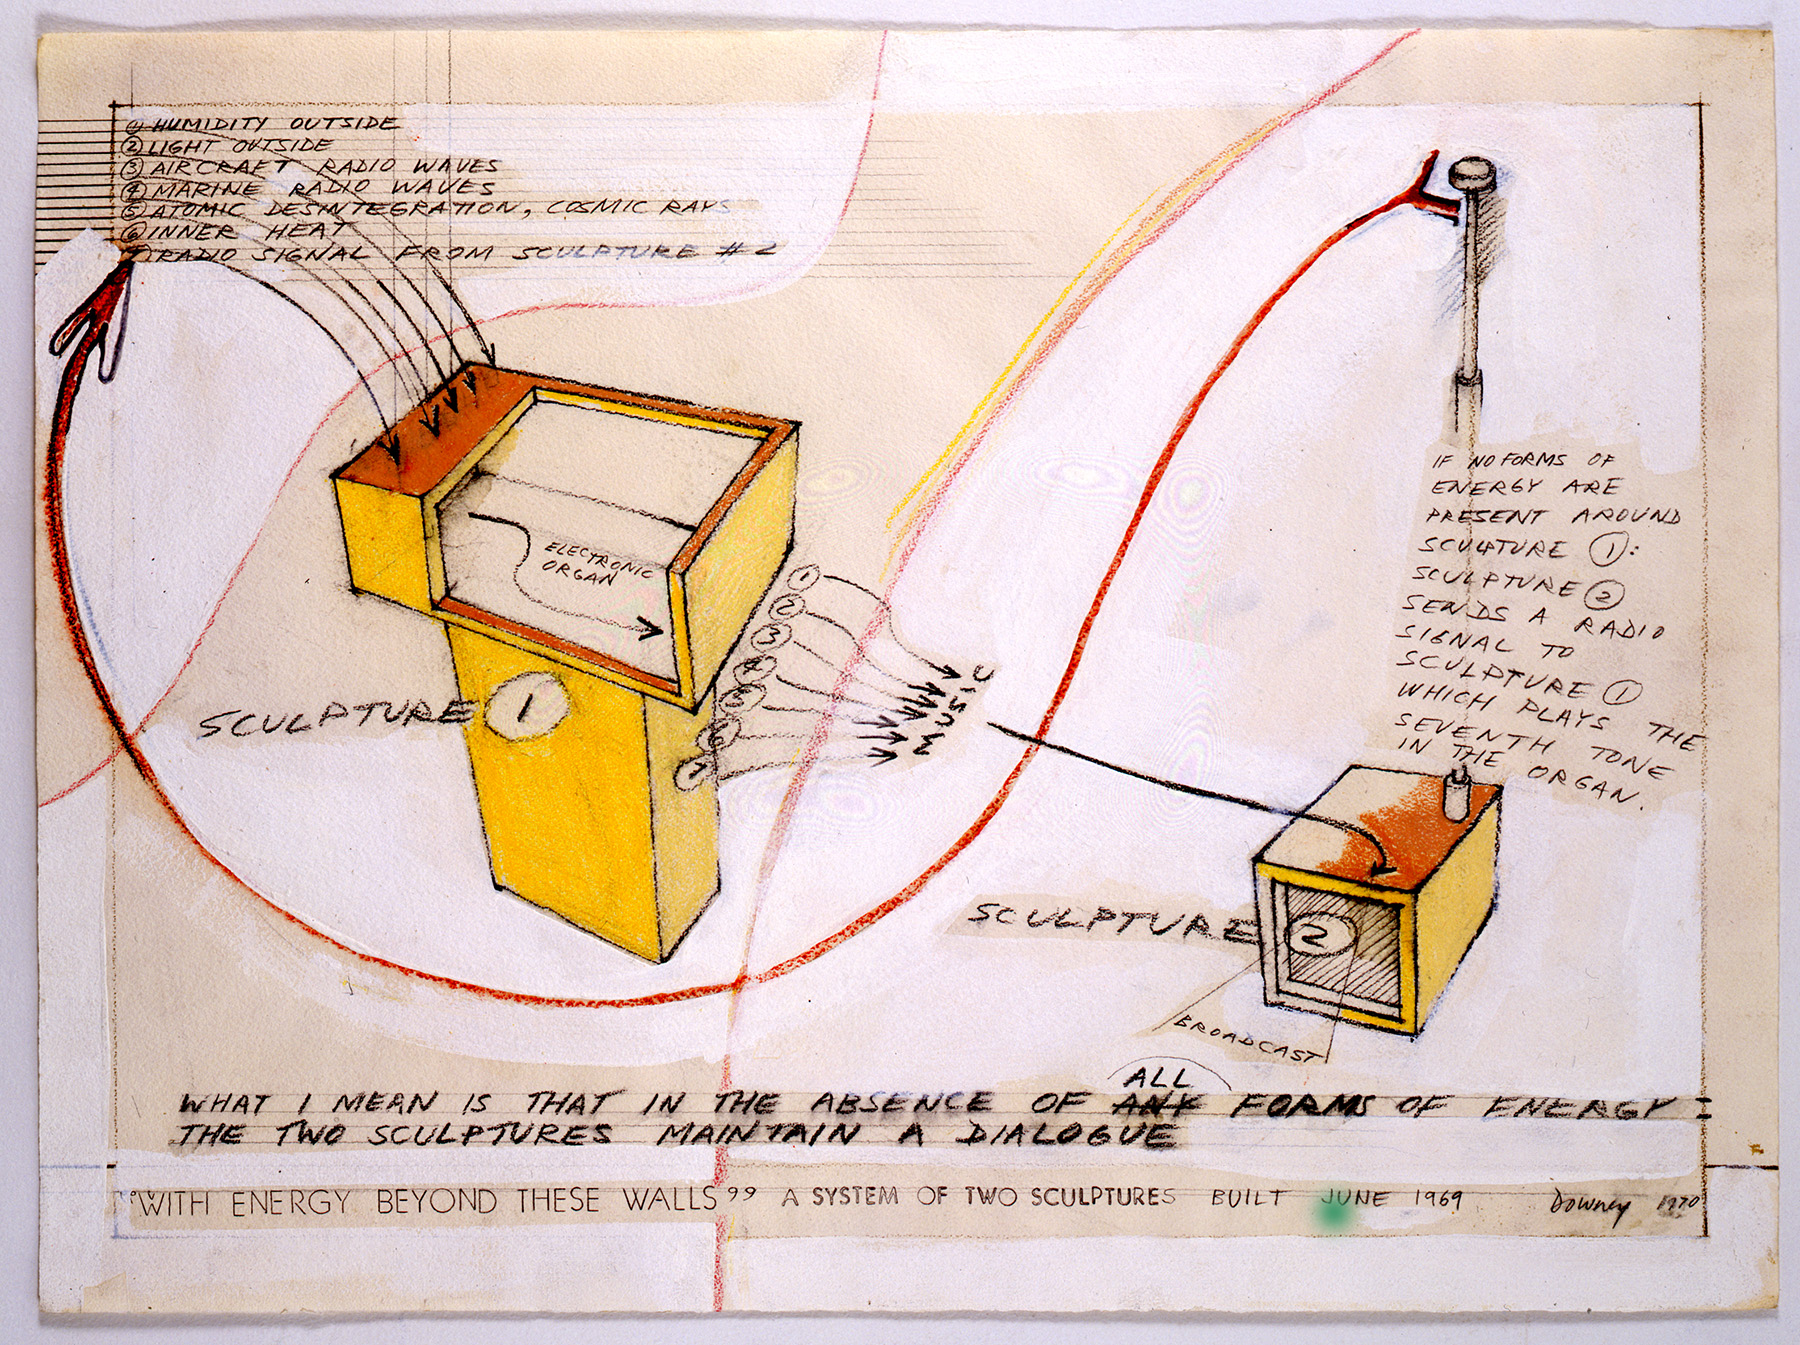 ① HUMIDITY OUTSIDE
② LIGHT OUTSIDE
③ AIRCRAFT RADIO WAVES
④ MARINE RADIO WAVES
⑤ ATOMIC DESINTEGRATION, COSMIC RAYS
⑥ INNER HEAT
⑦ RADIO SIGNAL FROM SCULPTURE #2
IF NO FORMS OF
ENERGY ARE
PRESENT AROUND
SCULPTURE ①:
SCULPTURE ②
SENDS A RADIO
SIGNAL TO
SCULPTURE ①
WHICH PLAYS THE
SEVENTH TONE
IN THE ORGAN.
ELECTRONIC
ORGAN
①
②
③
④
⑤
⑥
⑦
MUSIC
SCULPTURE ①
SCULPTURE ②
BROADCAST
ALL
WHAT I MEAN IS THAT IN THE ABSENCE OF ANY FORMS OF ENERGY
THE TWO SCULPTURES MAINTAIN A DIALOGUE
"WITH ENERGY BEYOND THESE WALLS" A SYSTEM OF TWO SCULPTURES BUILT JUNE 1969 Downey 1970